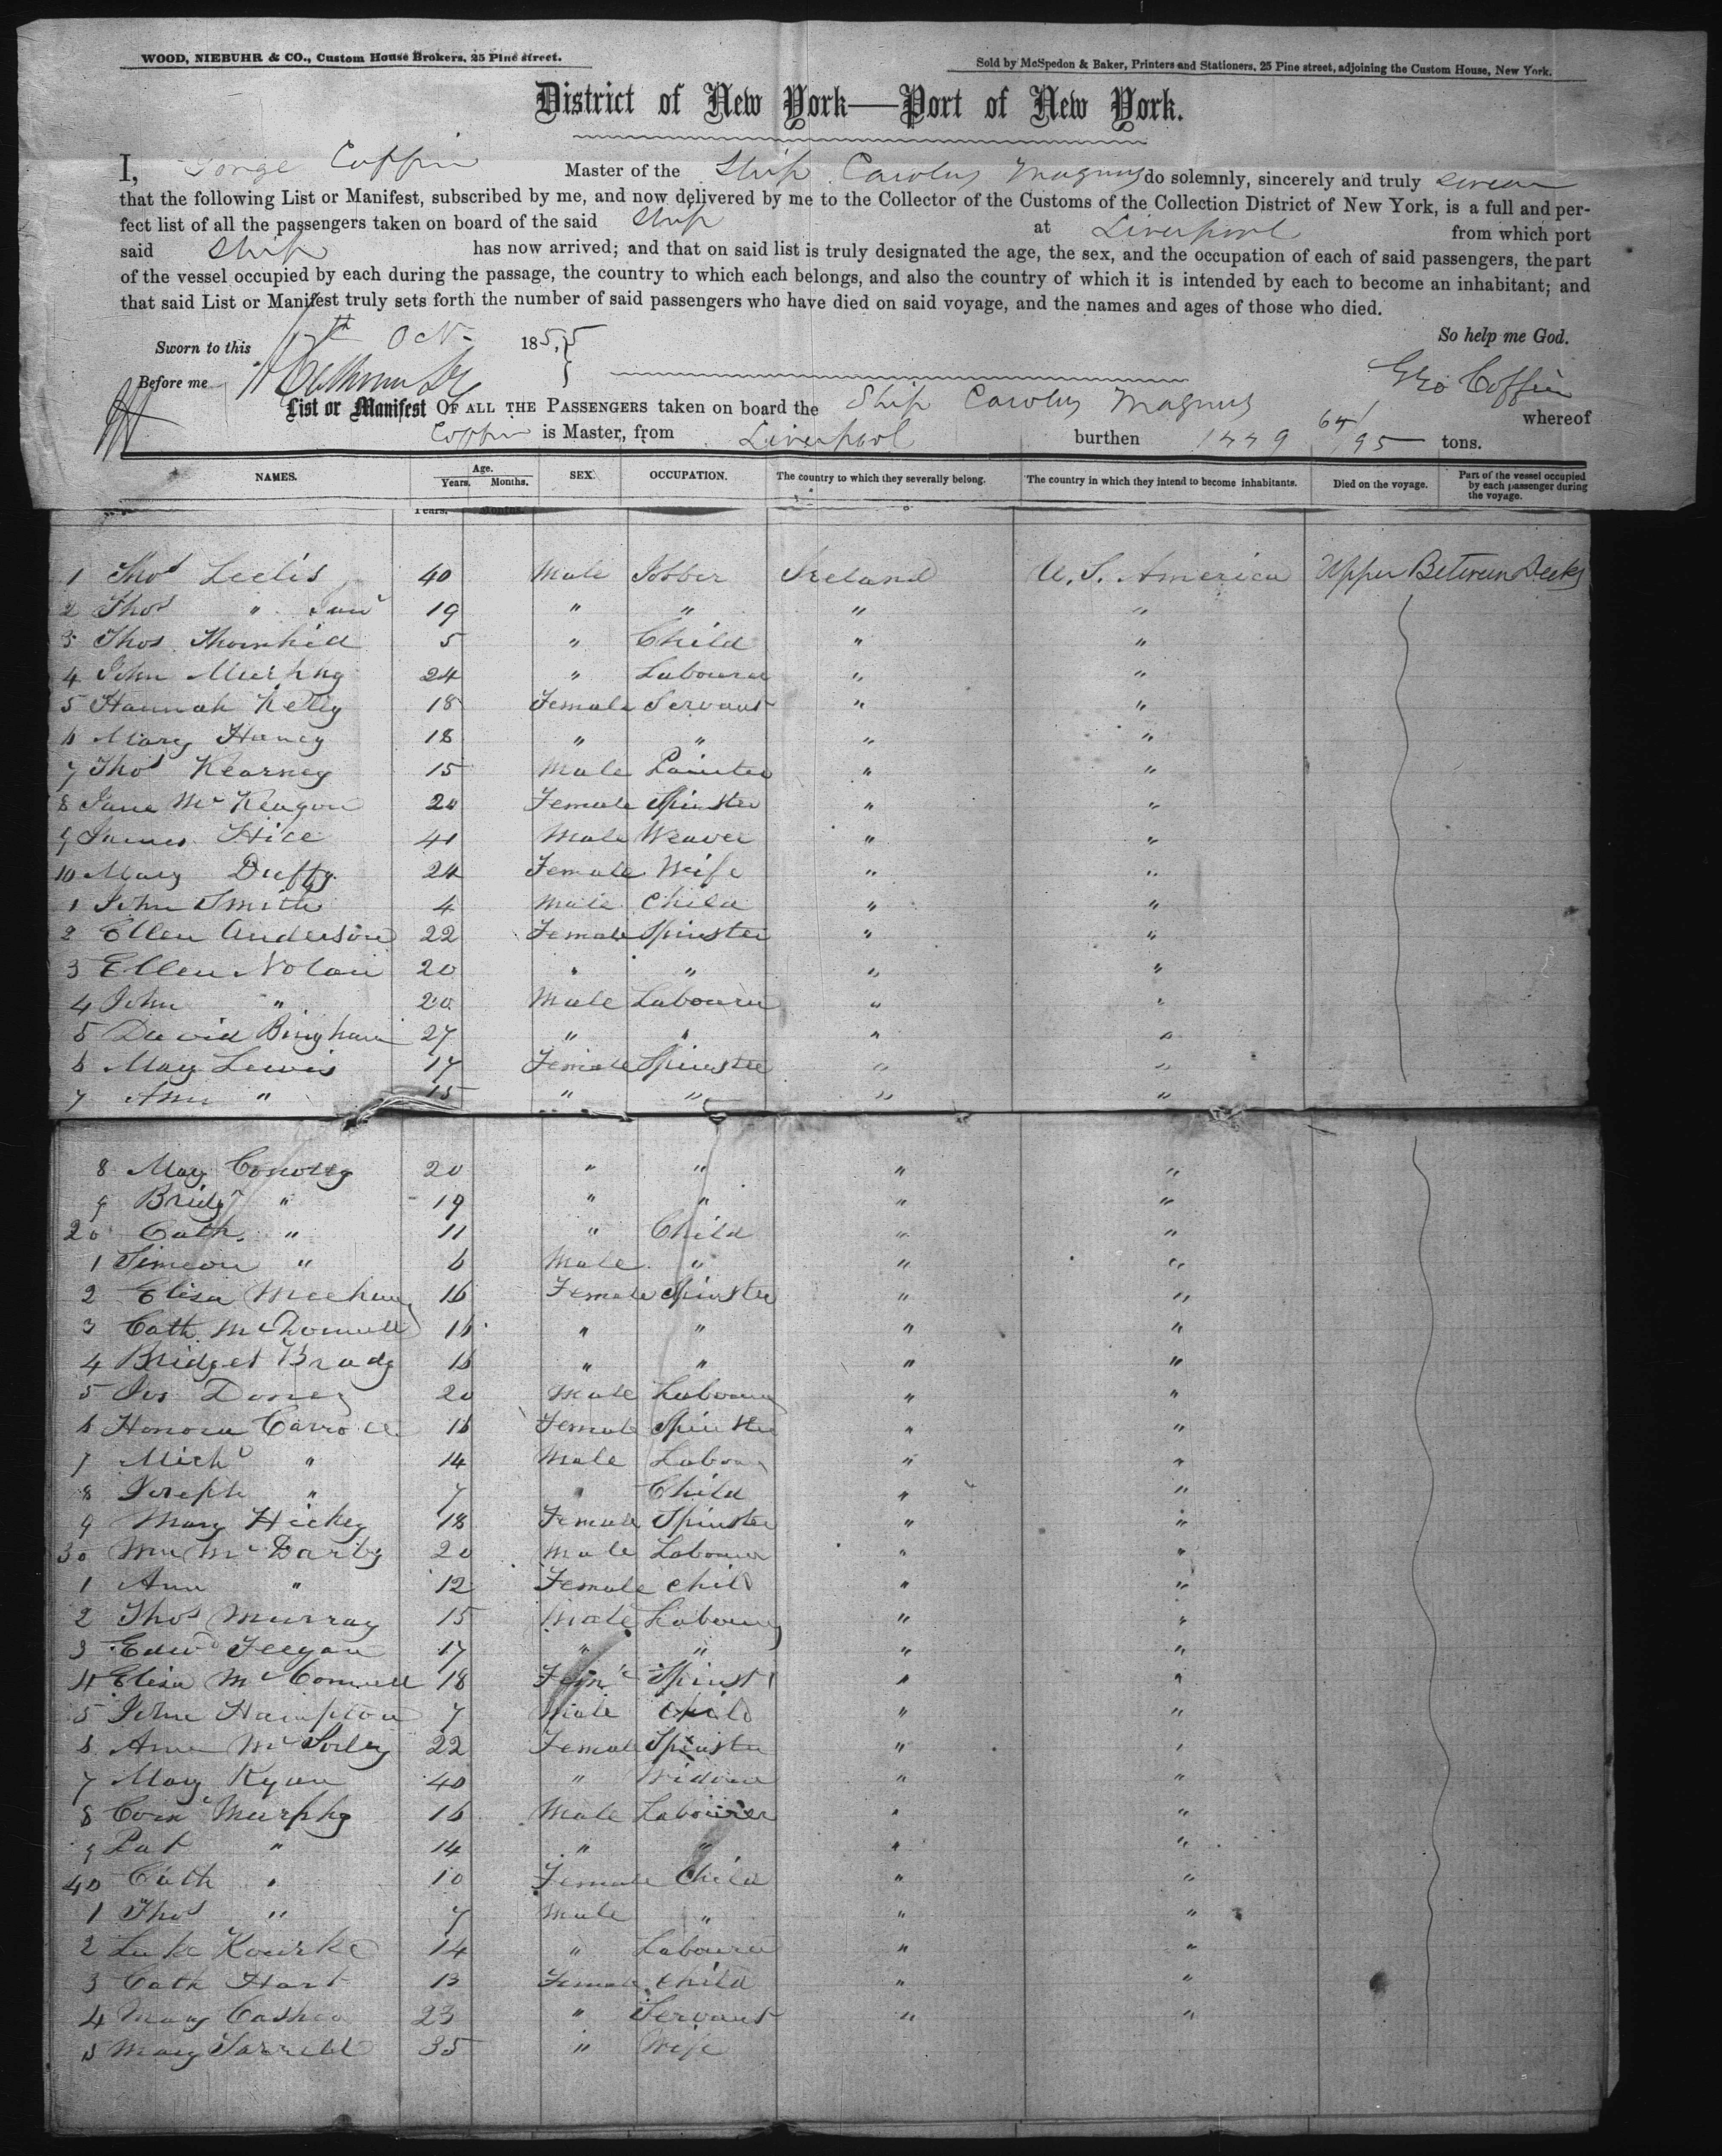 WOOD, NIEBUHR & CO., Custom House Brokers, 25 Pine street.
Sold by McSpedon & Baker, Printers and Stationers, 25 Pine street, adjoining the Custom House, New York.
District of New York—Port of New York.
I, George Coffin Master of the Ship Carolus Magnus do solemnly, sincerely and truly swear
that the following List or Manifest, subscribed by me, and now delivered by me to the Collector of the Customs of the Collection District of New York, is a full and per-
fect list of all the passengers taken on board of the said Ship at Liverpool from which port
said Ship has now arrived; and that on said list is truly designated the age, the sex, and the occupation of each of said passengers, the part
of the vessel occupied by each during the passage, the country to which each belongs, and also the country of which it is intended by each to become an inhabitant; and
that said List or Manifest truly sets forth the number of said passengers who have died on said voyage, and the names and ages of those who died.
Sworn to this 17th Oct 1855 So help me God.
Before me Geo Coffin
List or Manifest OF ALL THE PASSENGERS taken on board the Ship Carolus Magnus whereof
Coffin is Master, from Liverpool burthen 64/95 tons.
NAMES. Age. Years. Months. SEX. OCCUPATION. The country to which they severally belong. The country in which they intend to become inhabitants. Died on the voyage. Part of the vessel occupied by each passenger during the voyage.
Years. Months.
1 Thos 40 Male Jobber Ireland U. S. America Upper Between Decks
2 Thos " 19 " " " "
3 Thos Thornhill 5 " Child " "
4 John Murphy 24 " Labourer " "
5 Hannah Kelly 18 Female Servant " "
6 Mary Haney 18 " " " "
7 Thos Kearney 15 Male Painter " "
8 Jane McKeagon 20 Female Spinster " "
9 James Hice 41 Male Weaver " "
10 Mary Duffy 24 Female Wife " "
1 John Smith 4 Male Child " "
2 Ellen Anderson 22 Female Spinster " "
3 Ellen Nolan 20 " " " "
4 John " 20 Male Labourer " "
5 David Bingham 27 " " " "
6 Mary Lewis 17 Female Spinster " "
7 Ann " 15 " " " "
8 Mary Conolly 20 " " " "
9 Bridgt " 19 " " " "
20 Cath. " 11 " Child " "
1 Simeon " 6 Male " " "
2 Eliza Meehan 16 Female Spinster " "
3 Cath McDonnell 16 " " " "
4 Bridget Brady 16 " " " "
5 Jos 20 Male Labourer " "
6 Honora Carroll 16 Female Spinster " "
7 Michl " 14 Male Labour " "
8 Joseph " 7 " Child " "
9 Mary Hickey 18 Female Spinster " "
30 Wm McDarby 20 Male Labourer " "
1 Ann " 12 Female Child " "
2 Thos Murray 15 Male Labourer " "
3 Edwd Feegan 17 " " " "
4 Eliza McConnell 18 Feme Spinst " "
5 John Hampton 7 Male Child " "
6 Ann McSorley 22 Female Spinster " "
7 Mary Ryan 40 " Widow " "
8 Corns Murphy 16 Male Labourer " "
9 Pat " 14 " " " "
40 Cath " 10 Female Child " "
1 Thos " 7 Male " " "
2 Luke Rourke 14 " Labourer " "
3 Cath Hart 13 Female Child " "
4 Mary 23 " Servant " "
5 Mary Farrell 35 " Wife